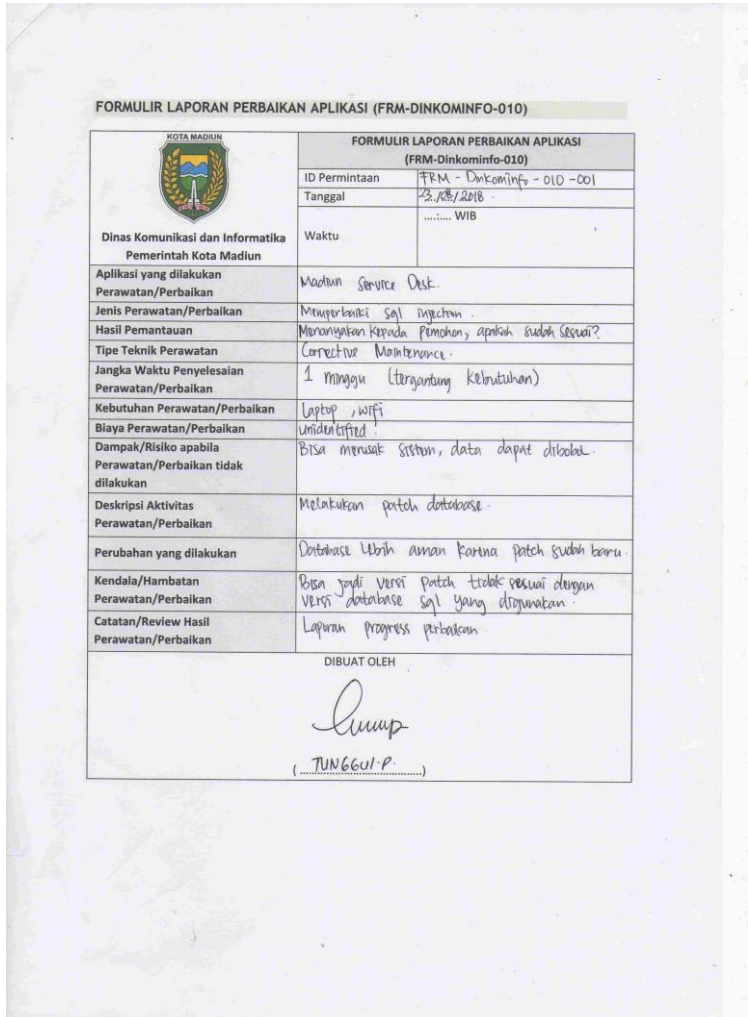 FORMULIR LAPORAN PERBAIKAN APLIKASI (FRM-DINKOMINFO-010)
KOTA MADIUN
Dinas Komunikasi dan Informatika
Pemerintah Kota Madiun
FORMULIR LAPORAN PERBAIKAN APLIKASI
(FRM-Dinkominfo-010)
ID Permintaan FRM - Dinkominfo - 010 - 001
Tanggal 23./ /.2018 .
Waktu ....:.... WIB
Aplikasi yang dilakukan
Perawatan/Perbaikan
Madiun Service Desk.
Jenis Perawatan/Perbaikan Memperbaiki sql injection .
Hasil Pemantauan Menanyakan kepada pemohon, apakah sudah sesuai?
Tipe Teknik Perawatan Corrective Maintenance .
Jangka Waktu Penyelesaian
Perawatan/Perbaikan
1 minggu (tergantung kebutuhan)
Kebutuhan Perawatan/Perbaikan Laptop , wifi
Biaya Perawatan/Perbaikan unidentified .
Dampak/Risiko apabila
Perawatan/Perbaikan tidak
dilakukan
Bisa merusak sistem, data dapat dibobol.
Deskripsi Aktivitas
Perawatan/Perbaikan
Melakukan patch database.
Perubahan yang dilakukan Database lebih aman karena patch sudah baru.
Kendala/Hambatan
Perawatan/Perbaikan
Bisa jadi versi patch tidak sesuai dengan
versi database sql yang digunakan .
Catatan/Review Hasil
Perawatan/Perbaikan
Laporan progress perbaikan .
DIBUAT OLEH
( TUNGGUL.P. )